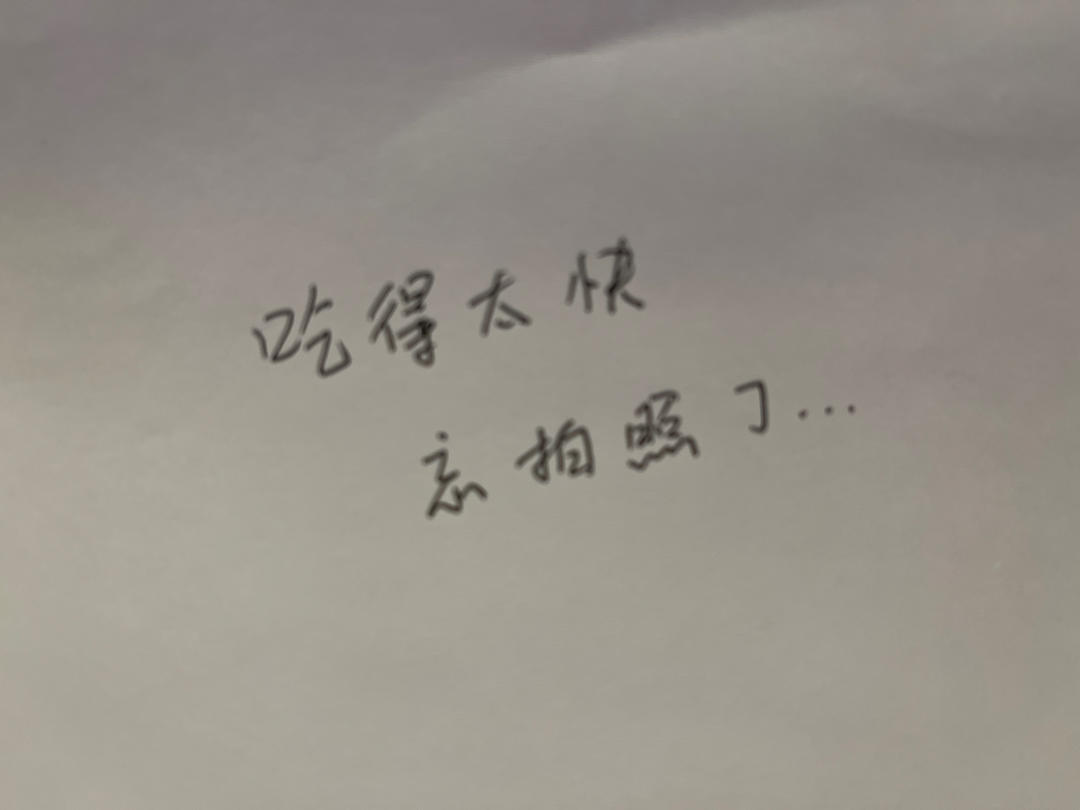 吃得太快
忘拍照了...